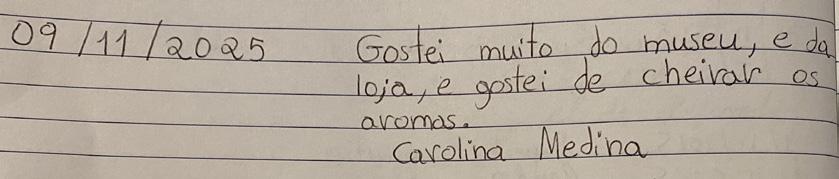 09/11/2025 Gostei muito do museu, e da
loja, e gostei de cheirar os
aromas.
Carolina Medina